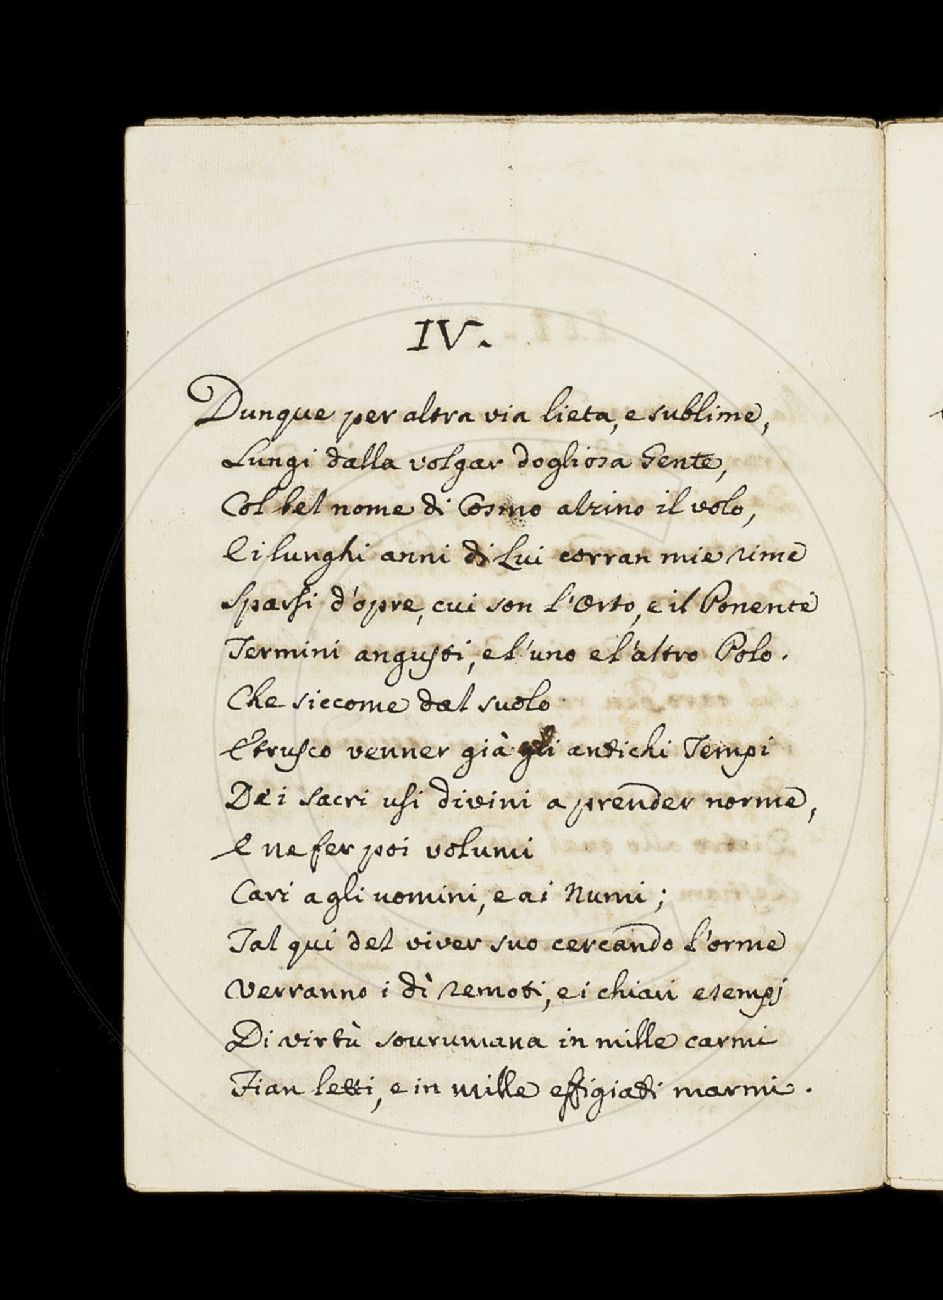 IV.
Dunque per altra via lieta, e sublime,
Lungi dalla volgar dogliosa Gente,
Col bel nome di Cosmo alzino il volo,
E i lunghi anni di Lui corran mie rime
Sparsi d'opre, cui son l'Orto, e il Ponente
Termini angusti, e l'uno e l'altro Polo.
Che siccome dal suolo
Etrusco venner già gli antichi Tempi
Dei sacri usi divini a prender norme,
E ne fer poi volumi
Cari agli uomini, e ai Numi;
Tal qui del viver suo cercando l'orme
Verranno i dì remoti, e i chiari esempj
Di virtù sourumana in mille carmi
Fian letti, e in mille effigiati marmi.